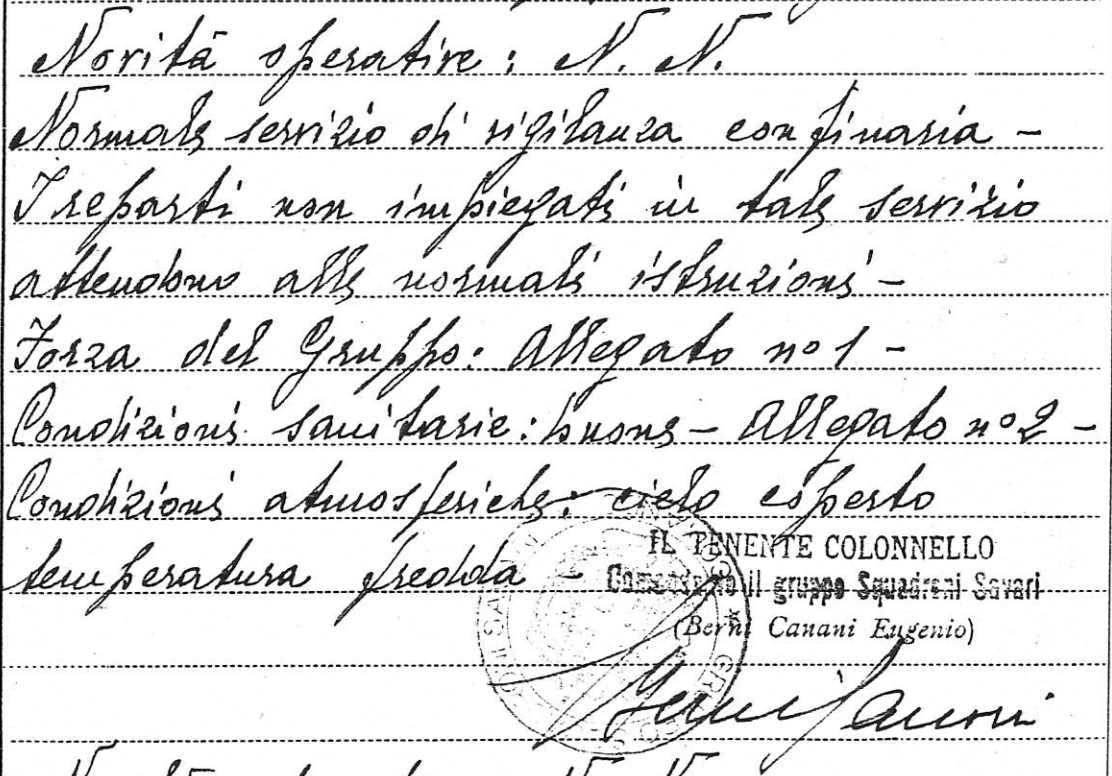 Novità operative: N. N.
Normale servizio di vigilanza confinaria -
I reparti non impiegati in tale servizio
attendono alle normali istruzioni -
Forza del Gruppo: Allegato n° 1 -
Condizioni sanitarie: buone - Allegato n° 2 -
Condizioni atmosferiche: cielo coperto
temperatura fredda -
IL TENENTE COLONNELLO
Comandante il gruppo Squadroni Savari
(Berni Canani Eugenio)